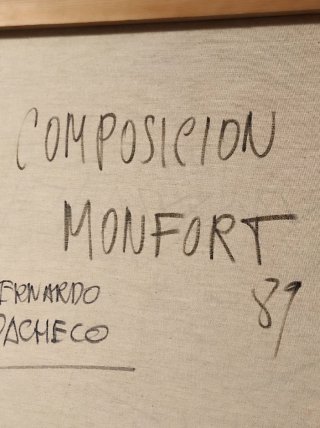 COMPOSICION
MONFORT
ERNARDO
PACHECO
89